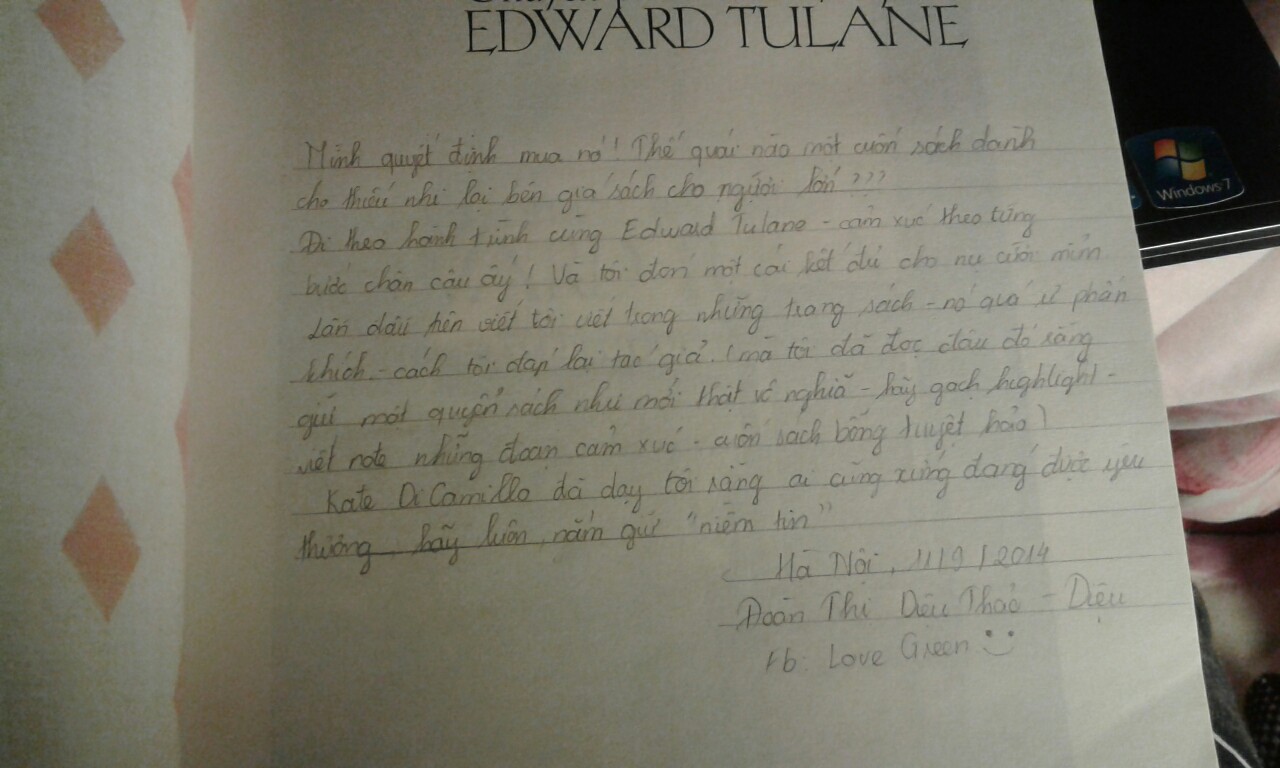 EDWARD TULANE
Mình quyết định mua nó! Thế quái nào một cuốn sách dành
cho thiếu nhi lại bên giá sách cho người lớn???
Đi theo hành trình cùng Edward Tulane - cảm xúc theo từng
bước chân cậu ấy! Và tôi đón một cái kết đủ cho nụ cười mỉm.
Lần đầu tiên viết tôi viết trong những trang sách - nó quá ư phấn
khích - cách tôi đáp lại tác giả. (mà tôi đã đọc đâu đó rằng
giữ một quyển sách như mới thật vô nghĩa - hãy gạch highlight -
viết note những đoạn cảm xúc - cuốn sách bỗng tuyệt hảo)
Kate DiCamillo đã dạy tôi rằng ai cũng xứng đáng được yêu
thương, hãy luôn nắm giữ "niềm tin"
Hà Nội, 11/9/2014
Đoàn Thị Diệu Thảo - Diệu
Fb: Love Green
Windows 7